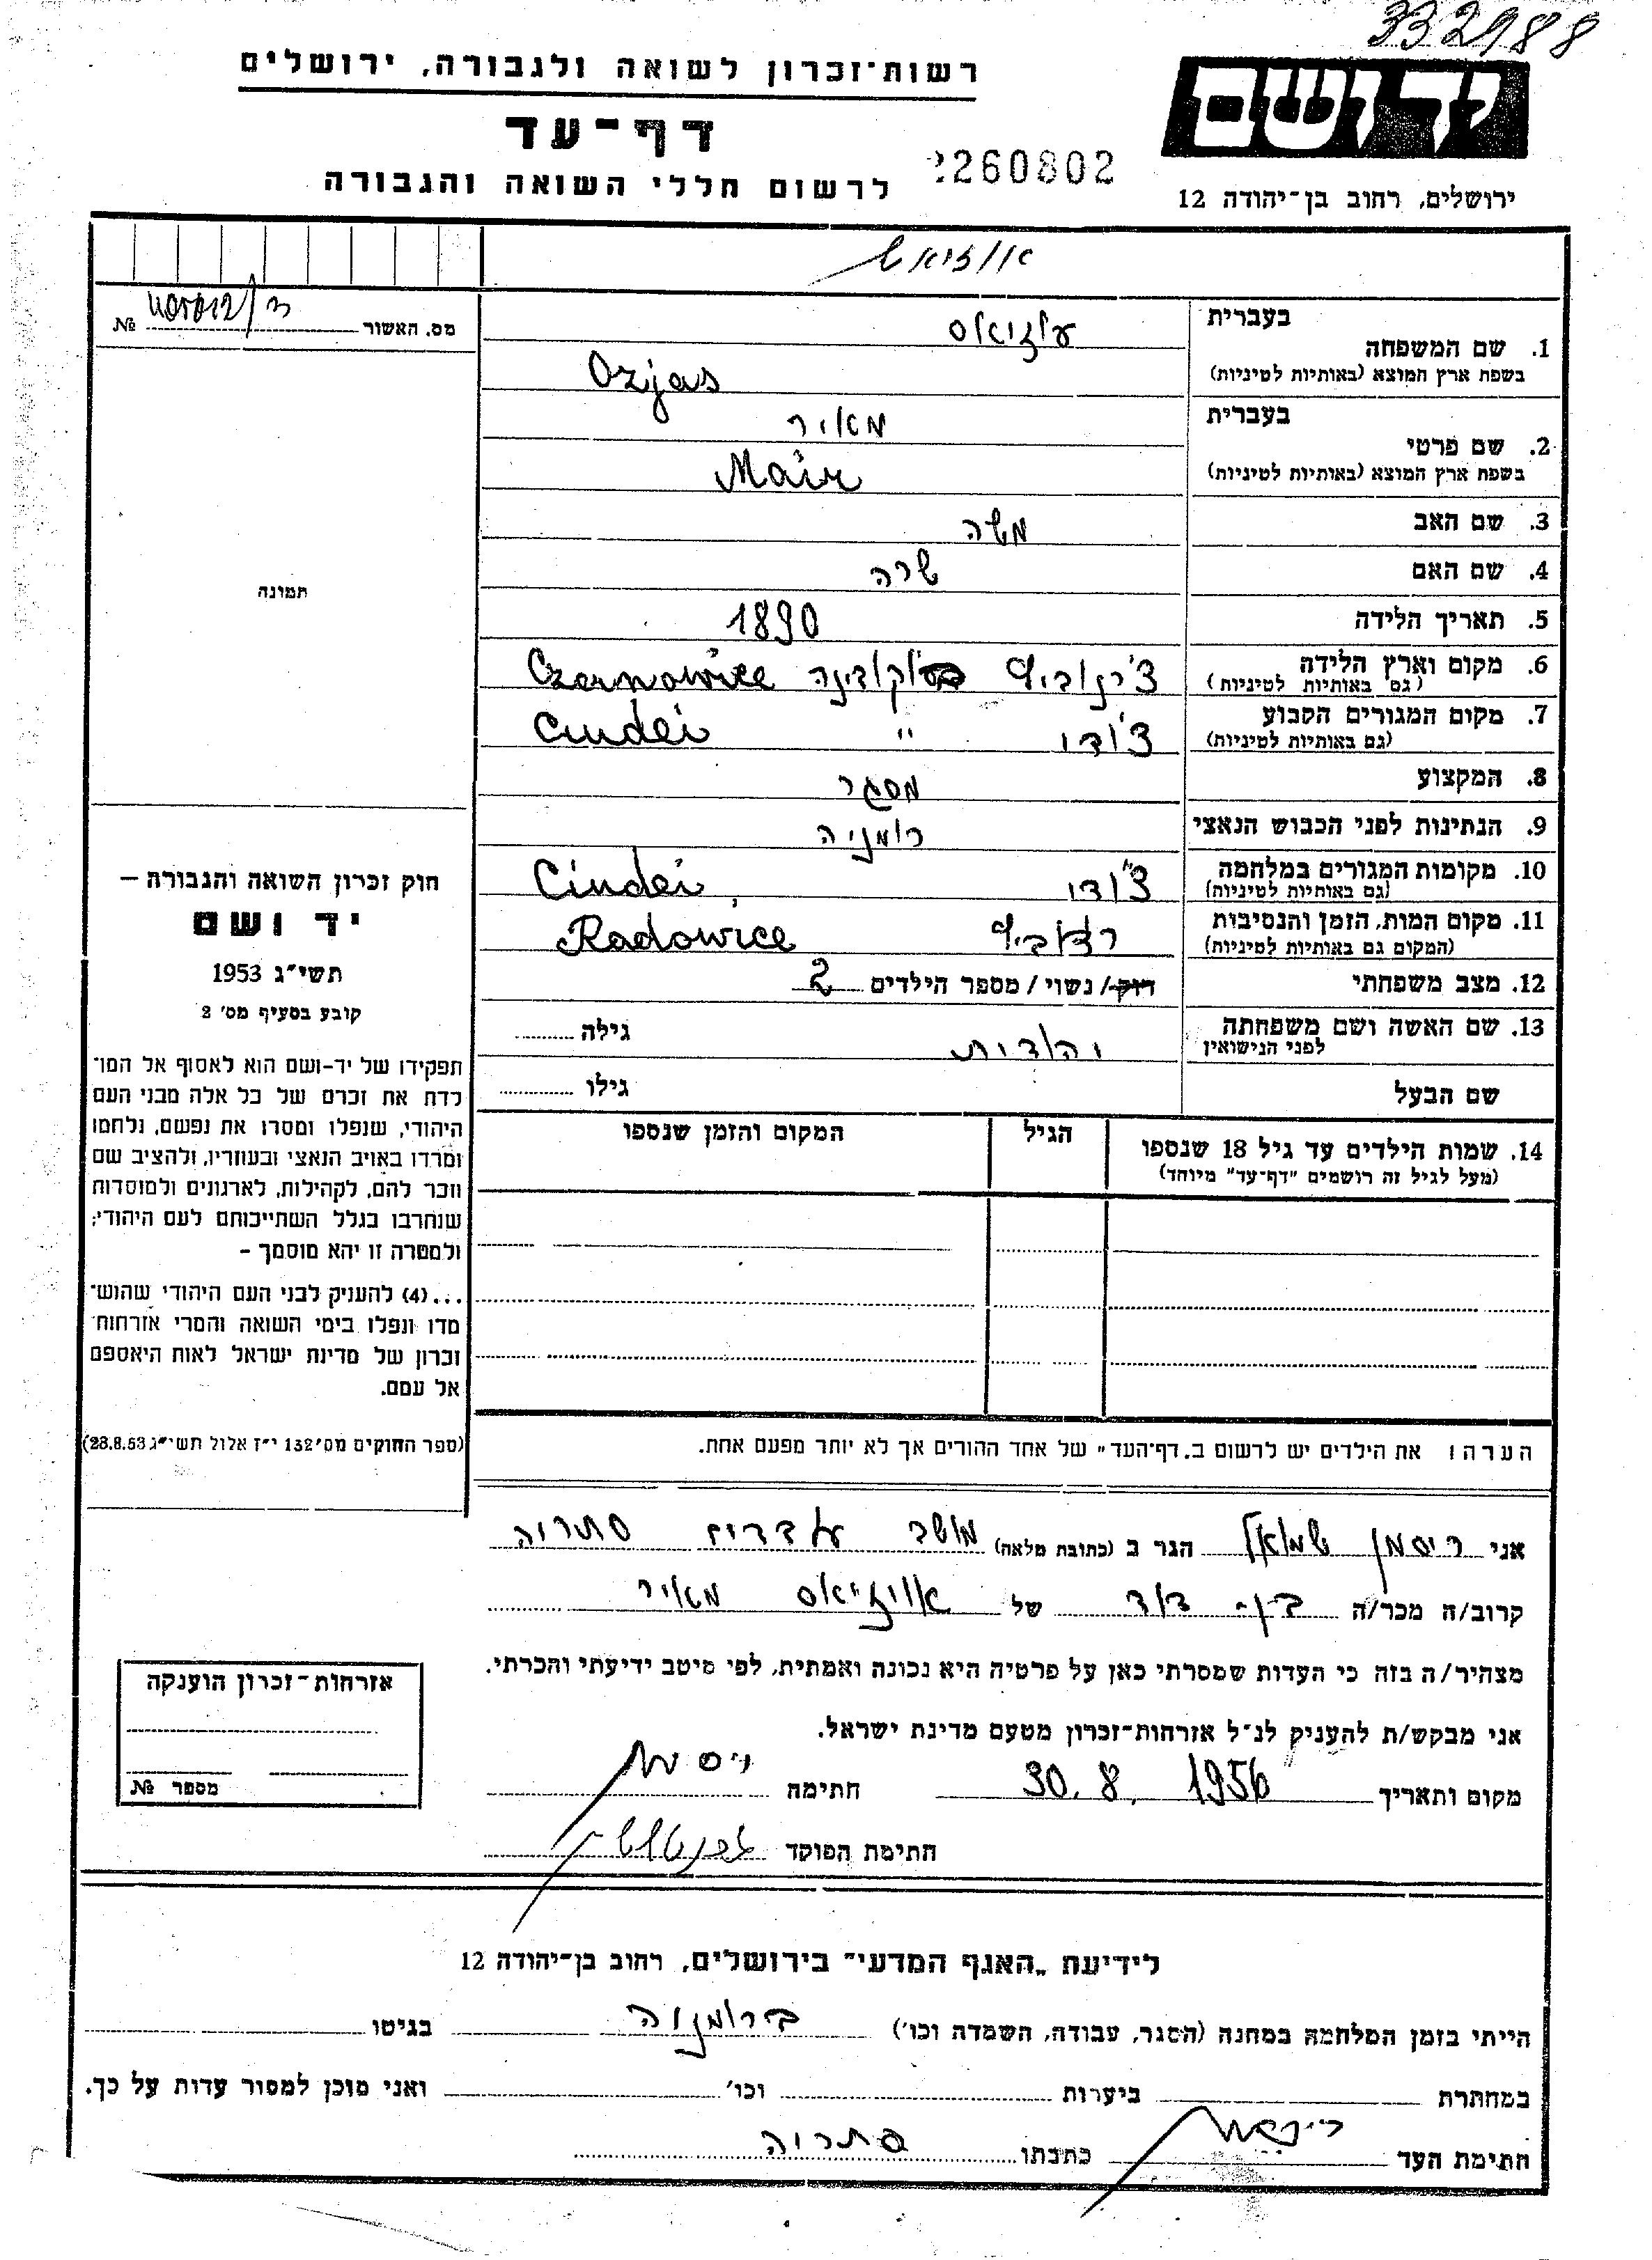 332988
רשות־זכרון לשואה ולגבורה, ירושלים
יד ושם
דף־עד
לרשום חללי השואה והגבורה
2260802
ירושלים, רחוב בן־יהודה 12
מס. האשור № 
בעברית עוזיאס
1. שם המשפחה
בשפת ארץ המוצא (באותיות לטיניות) Ozjas
בעברית מאיר
2. שם פרטי
בשפת ארץ המוצא (באותיות לטיניות) Mair
3. שם האב משה
4. שם האם שרה
5. תאריך הלידה 1890
6. מקום וארץ הלידה צ'רנוביץ בוקובינה Czernowice
(גם באותיות לטיניות)
7. מקום המגורים הקבוע צ'ודי " Ciudei
(גם באותיות לטיניות)
8. המקצוע מסגר
9. הנתינות לפני הכבוש הנאצי רומניה
10. מקומות המגורים במלחמה צ'ודי Ciudei,
(גם באותיות לטיניות)
11. מקום המות, הזמן והנסיבות רדוביץ Radowice
(המקום גם באותיות לטיניות)
12. מצב משפחתי רווק/ נשוי / מספר הילדים 2
13. שם האשה ושם משפחתה יהודית גילה
לפני הנישואין
שם הבעל גילו
14. שמות הילדים עד גיל 18 שנספו הגיל המקום והזמן שנספו
(מעל לגיל זה רושמים "דף־עד" מיוחד)
תמונה
חוק זכרון השואה והגבורה —
יד ושם
תשי"ג 1953
קובע בסעיף מס' 2
תפקידו של יד-ושם הוא לאסוף אל המו־
לדת את זכרם של כל אלה מבני העם
היהודי, שנפלו ומסרו את נפשם, נלחמו
ומרדו באויב הנאצי ובעוזריו, ולהציב שם
וזכר להם, לקהילות, לארגונים ולמוסדות
שנחרבו בגלל השתייכותם לעם היהודי;
ולמטרה זו יהא מוסמך –
...(4) להעניק לבני העם היהודי שהוש־
מדו ונפלו בימי השואה והמרי אזרחות
זכרון של מדינת ישראל לאות היאספם
אל עמם.
(ספר החוקים מס' 132 י"ז אלול תשי"ג 28.8.53)
הערה: את הילדים יש לרשום ב"דף־העד" של אחד ההורים אך לא יותר מפעם אחת.
אני ריסמן שמואל הגר ב (כתובת מלאה) מושב סתריה
קרוב/ה מכר/ה בן-דוד של אוזיאס מאיר
מצהיר/ה בזה כי העדות שמסרתי כאן על פרטיה היא נכונה ואמתית, לפי מיטב ידיעתי והכרתי.
אני מבקש/ת להעניק לנ"ל אזרחות־זכרון מטעם מדינת ישראל.
מקום ותאריך 30.8.1956 חתימה ריסמן
חתימת הפוקד
אזרחות־זכרון הוענקה
מספר №
לידיעת "האגף המדעי" בירושלים, רחוב בן־יהודה 12
הייתי בזמן המלחמה במחנה (הסגר, עבודה, השמדה וכו') ברומניה בגיטו
במחתרת ביערות וכו' ואני מוכן למסור עדות על כך.
חתימת העד ריסמן כתבתו סתריה